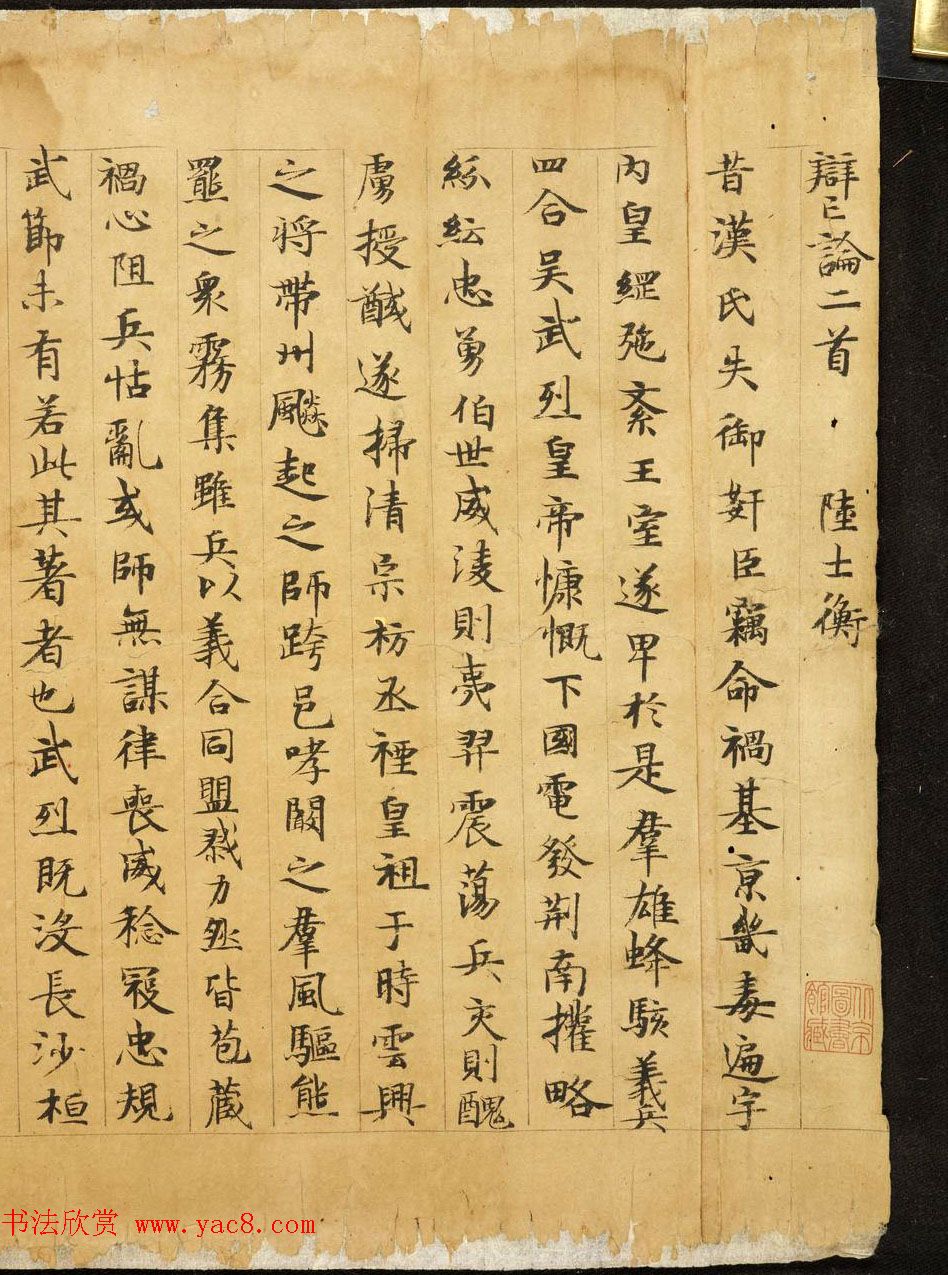 辯亡論二首 陸士衡
昔漢氏失御奸臣竊命禍基京畿毒遍宇
內皇綱弛紊王室遂卑於是羣雄蜂駭義兵
四合吴武烈皇帝慷慨下國電發荆南摧略
紛紜忠勇伯世威淩則夷羿震蕩兵交則醜
虜授馘遂掃清宗枋丞禋皇祖于時雲興
之將帶州飈起之師跨邑哮闞之羣風驅熊
羆之衆霧集雖兵以義合同盟勠力然皆苞藏
禍心阻兵怙亂或師無謀律喪威稔寇忠規
武節未有若此其著者也武烈既沒長沙桓
北京圖書館藏
书法欣赏 www.yac8.com